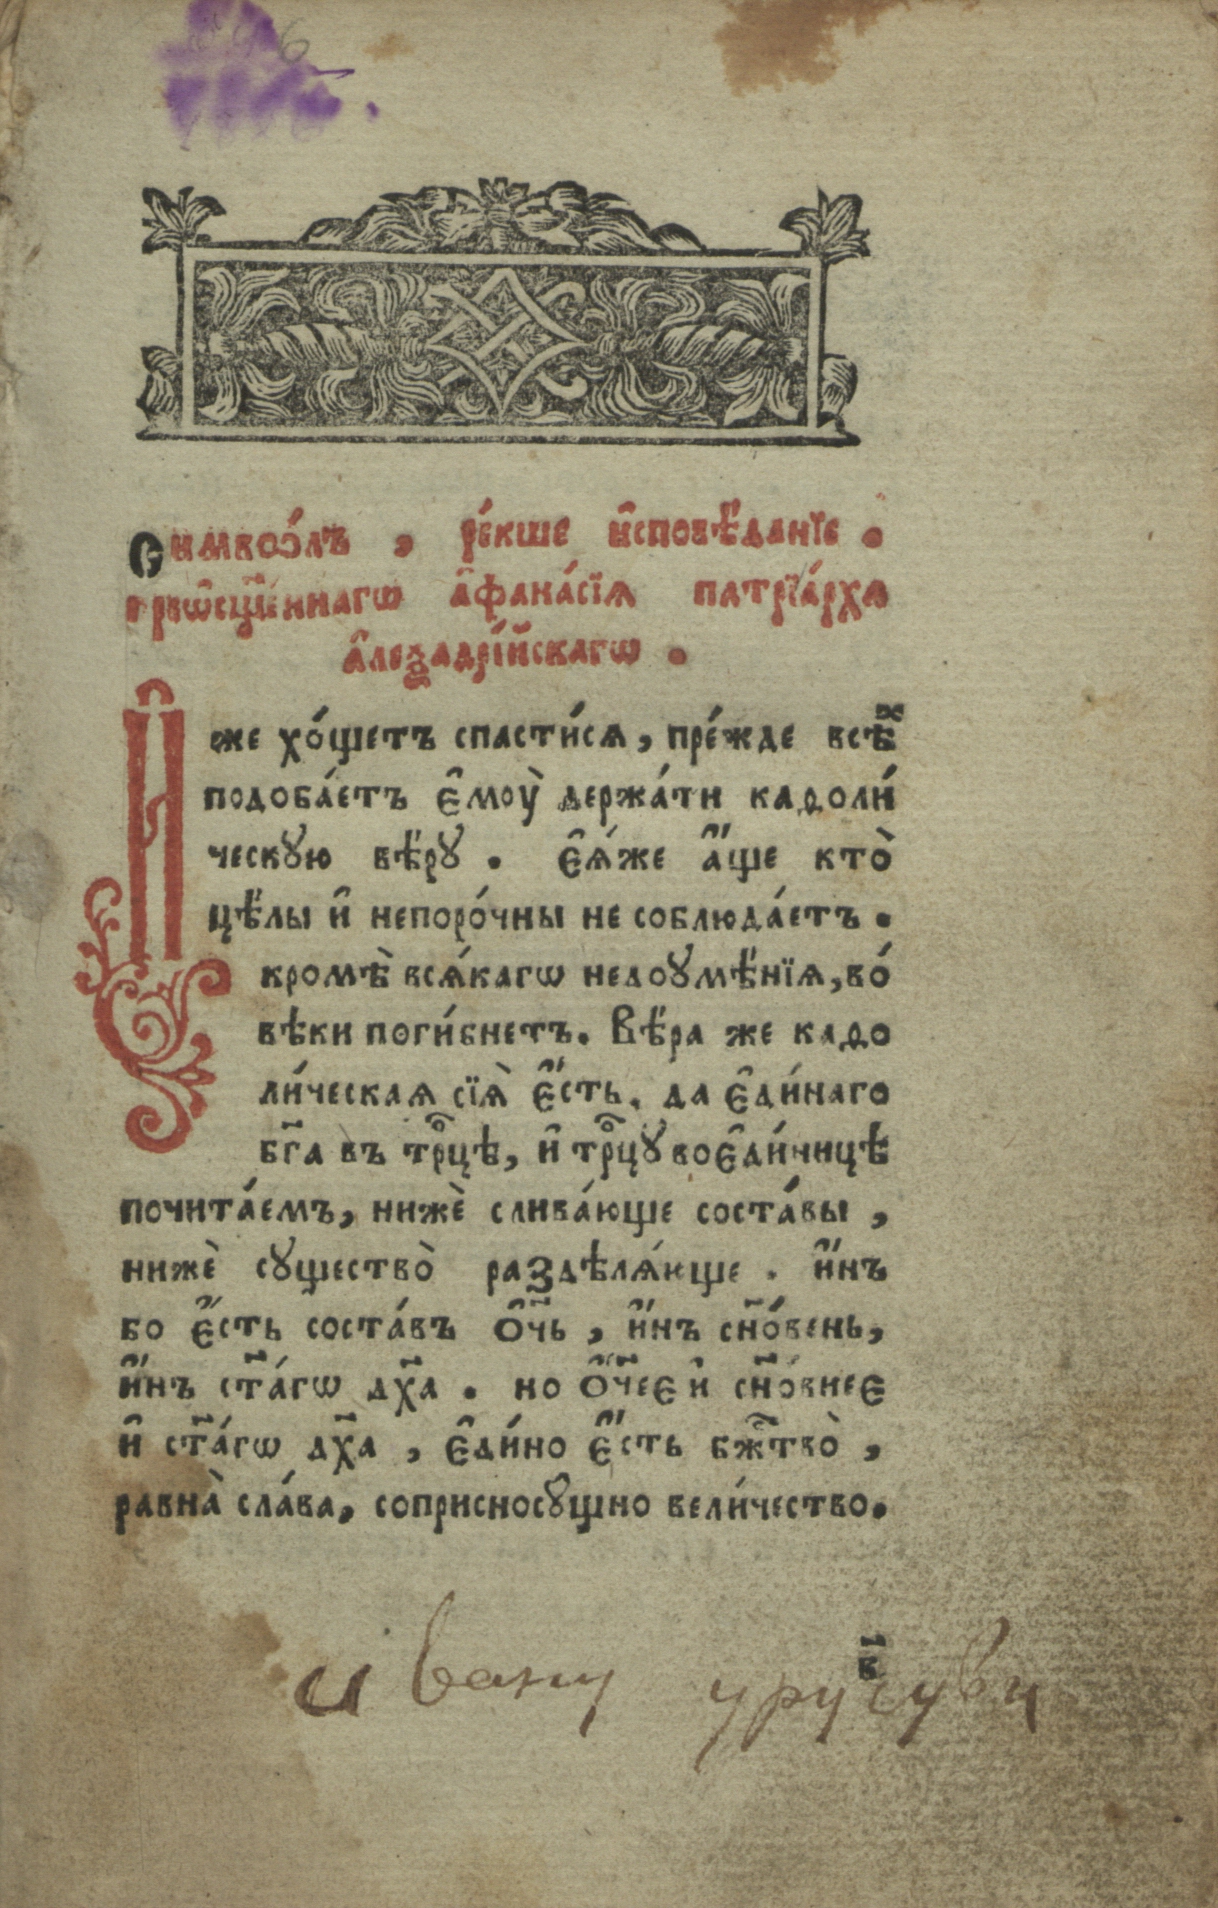 Сѷмво́лъ, ре́кше и҆сповѣ́данїе.
преѡсщ҃е́ннагѡ а҆фана́сїѧ патрїа́рха
а҆леѯадрі́йскагѡ.
Иже хо́щетъ спасти́сѧ, пре́жде всѣ́хъ
подоба́етъ є҆моу̀ держа́ти каѳоли́
ческꙋю вѣ́рꙋ. є҆ѧ́же а҆́ще кто̀
цѣ́лы и҆ непоро́чны не соблюда́етъ.
кромѣ̀ всѧ́кагѡ недоꙋмѣ́нїѧ, во́
вѣки поги́бнетъ. Вѣ́ра же каѳо
ли́ческаѧ сїѧ̀ є҆́сть, да є҆ди́наго
бг҃а въ трⷪ҇цѣ, и҆ трⷪ҇цꙋ воє҆ди́ницѣ
почита́емъ, нижѐ слива́юще соста́вы,
нижѐ сꙋщество̀ раздѣлѧ́юще. и҆́нъ
бо є҆́сть соста́въ ѻ҆́ч҃ь, и҆́нъ сн҃о́вень,
и҆́нъ ст҃а́гѡ дх҃а. но ѻ҆́ч҃еє и҆ сн҃о́внеє
и҆ ст҃а́гѡ дх҃а, є҆ди́но є҆́сть бж҃тво̀,
равна̀ сла́ва, соприсносꙋщно вели́чество.
в҃
ивану